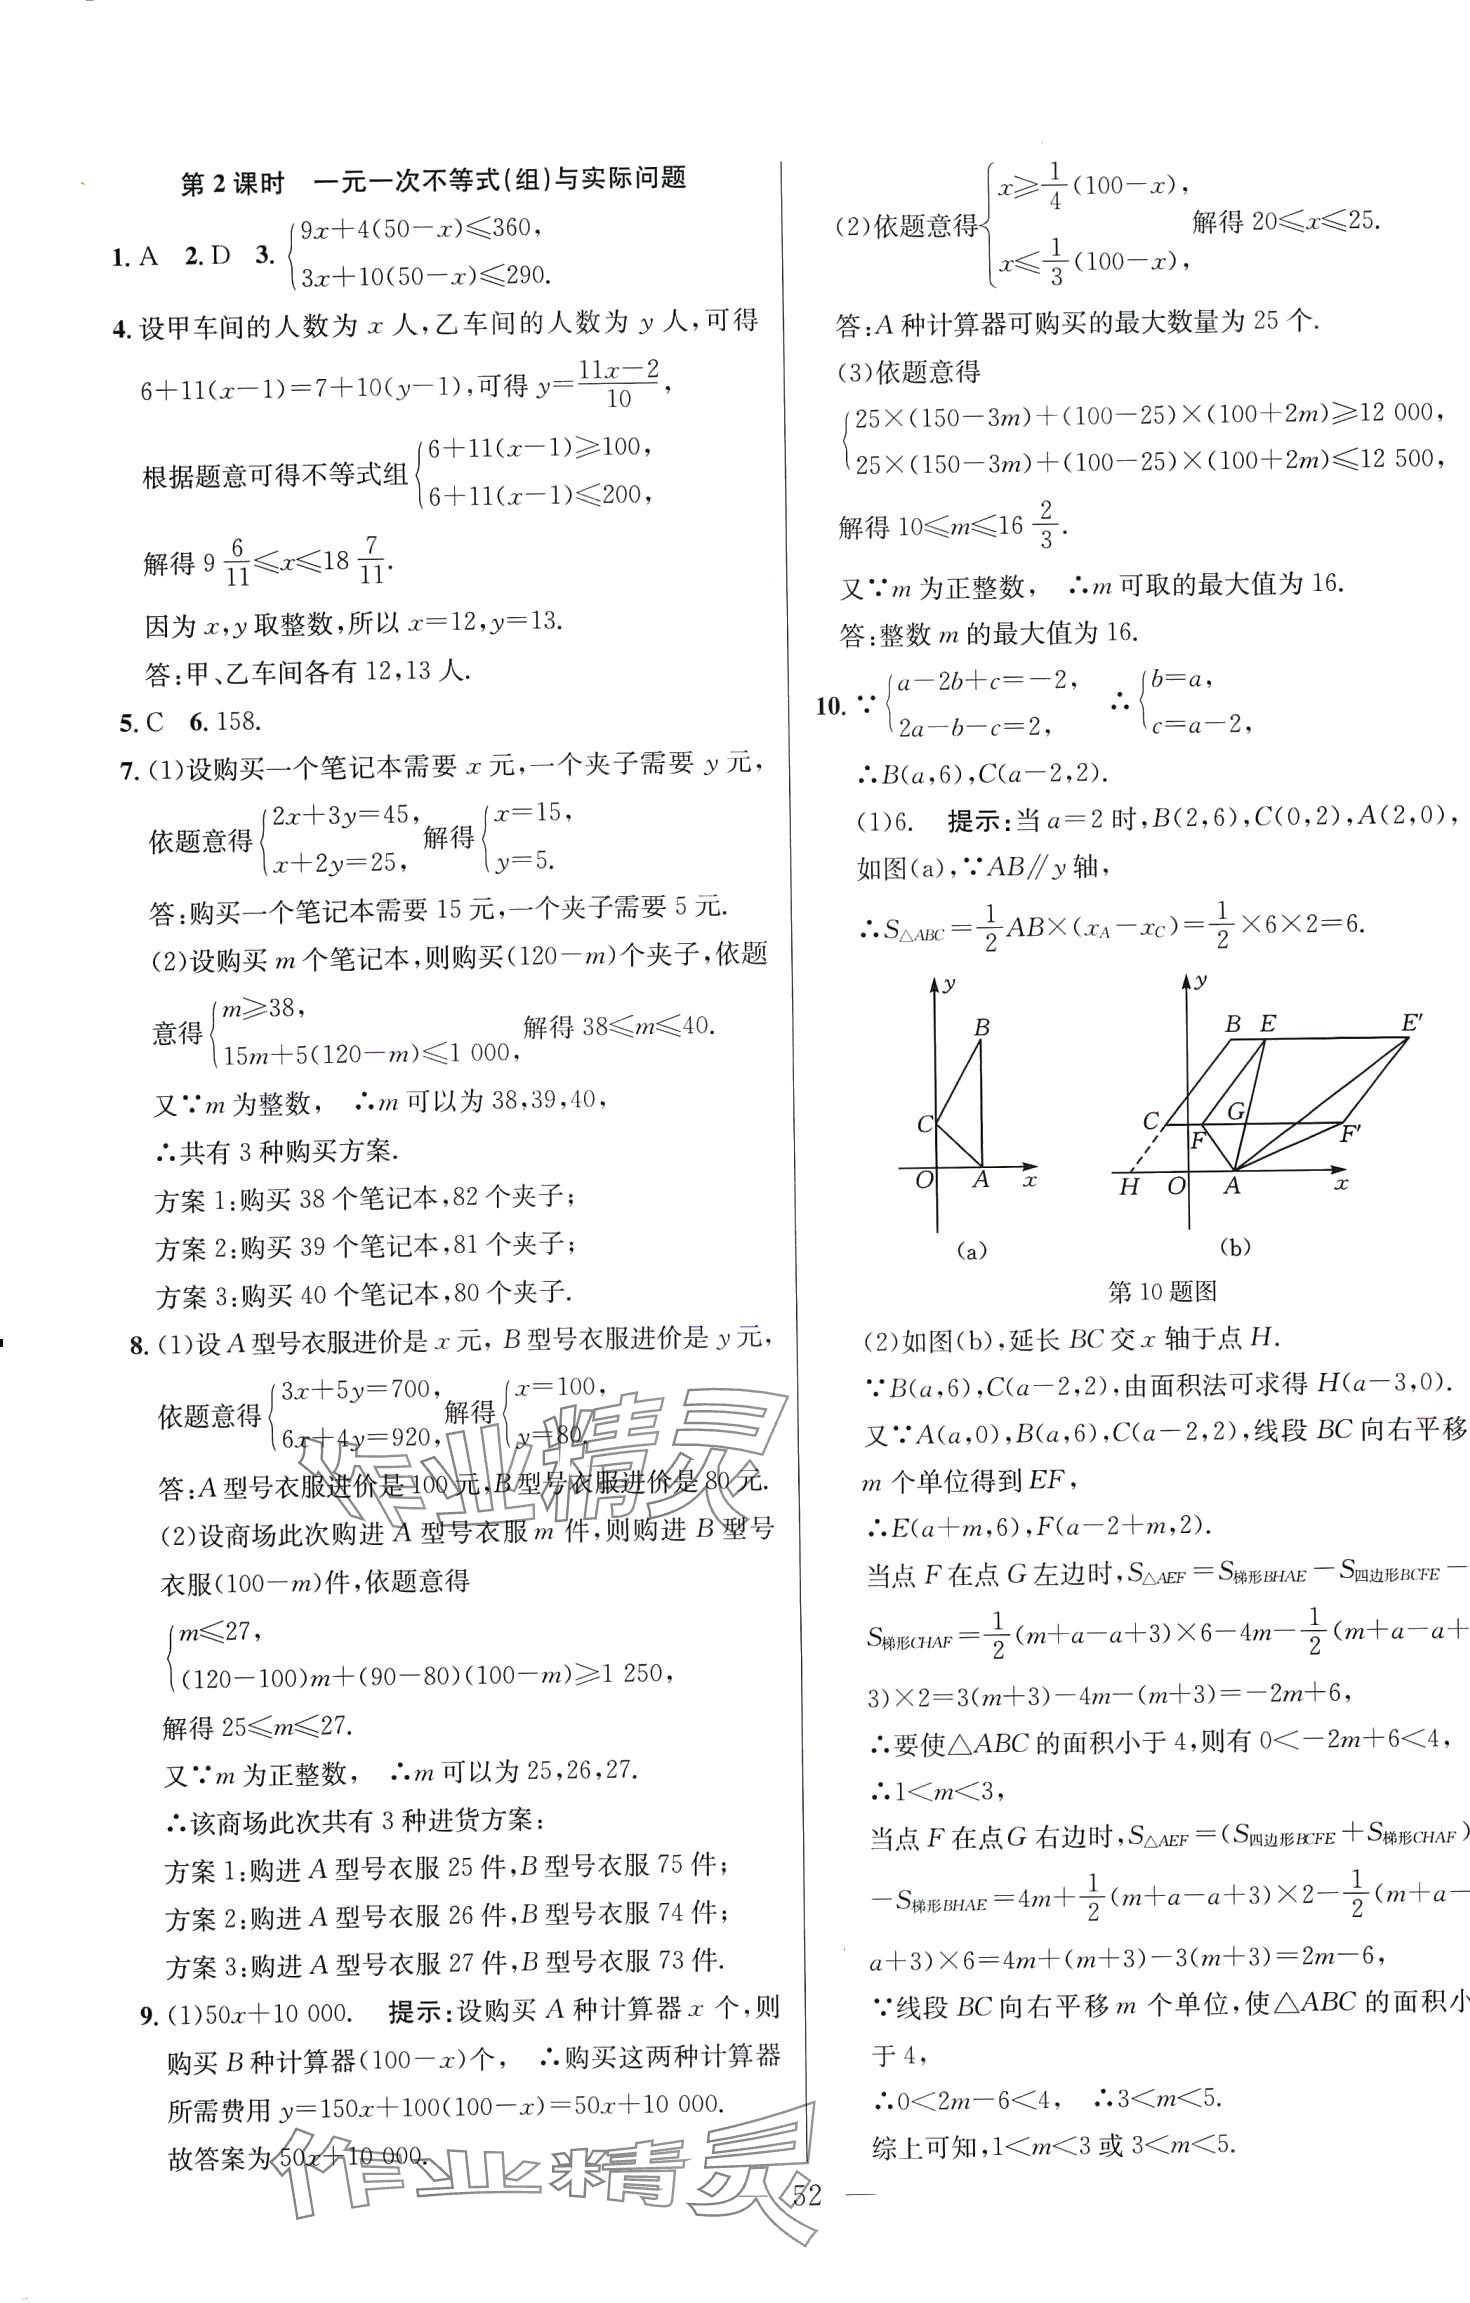 第2课时　一元一次不等式(组)与实际问题
1. A　2. D　3. {9x+4(50-x)≤360,
3x+10(50-x)≤290.
4. 设甲车间的人数为 x 人,乙车间的人数为 y 人,可得
6+11(x-1)=7+10(y-1),可得 y=(11x-2)/10,
根据题意可得不等式组{6+11(x-1)≥100,
6+11(x-1)≤200,
解得 9 6/11≤x≤18 7/11.
因为 x,y 取整数,所以 x=12,y=13.
答:甲、乙车间各有 12,13 人.
5. C　6. 158.
7. (1)设购买一个笔记本需要 x 元,一个夹子需要 y 元,
依题意得{2x+3y=45, x+2y=25, 解得{x=15, y=5.
答:购买一个笔记本需要 15 元,一个夹子需要 5 元.
(2)设购买 m 个笔记本,则购买(120-m)个夹子,依题
意得{m≥38, 15m+5(120-m)≤1 000, 解得 38≤m≤40.
又∵m 为整数,　∴m 可以为 38,39,40,
∴共有 3 种购买方案.
方案 1:购买 38 个笔记本,82 个夹子;
方案 2:购买 39 个笔记本,81 个夹子;
方案 3:购买 40 个笔记本,80 个夹子.
8. (1)设 A 型号衣服进价是 x 元, B 型号衣服进价是 y 元,
依题意得{3x+5y=700, 6x+4y=920, 解得{x=100, y=80,
答:A 型号衣服进价是 100 元,B 型号衣服进价是 80 元.
(2)设商场此次购进 A 型号衣服 m 件,则购进 B 型号
衣服(100-m)件,依题意得
{m≤27,
(120-100)m+(90-80)(100-m)≥1 250,
解得 25≤m≤27.
又∵m 为正整数,　∴m 可以为 25,26,27.
∴该商场此次共有 3 种进货方案:
方案 1:购进 A 型号衣服 25 件,B 型号衣服 75 件;
方案 2:购进 A 型号衣服 26 件,B 型号衣服 74 件;
方案 3:购进 A 型号衣服 27 件,B 型号衣服 73 件.
9. (1)50x+10 000.　提示:设购买 A 种计算器 x 个,则
购买 B 种计算器(100-x)个,　∴购买这两种计算器
所需费用 y=150x+100(100-x)=50x+10 000.
故答案为 50x+10 000.
(2)依题意得{x≥1/4(100-x), x≤1/3(100-x), 解得 20≤x≤25.
答:A 种计算器可购买的最大数量为 25 个.
(3)依题意得
{25×(150-3m)+(100-25)×(100+2m)≥12 000,
25×(150-3m)+(100-25)×(100+2m)≤12 500,
解得 10≤m≤16 2/3.
又∵m 为正整数,　∴m 可取的最大值为 16.
答:整数 m 的最大值为 16.
10. ∵{a-2b+c=-2, 2a-b-c=2,　∴{b=a, c=a-2,
∴B(a,6),C(a-2,2).
(1)6.　提示:当 a=2 时,B(2,6),C(0,2),A(2,0),
如图(a),∵AB∥y 轴,
∴S△ABC=1/2AB×(xA-xC)=1/2×6×2=6.
y
B
C
O
A
x
(a)
y
B
E
E′
C
G
F
F′
H
O
A
x
(b)
第 10 题图
(2)如图(b),延长 BC 交 x 轴于点 H.
∵B(a,6),C(a-2,2),由面积法可求得 H(a-3,0).
又∵A(a,0),B(a,6),C(a-2,2),线段 BC 向右平移
m 个单位得到 EF,
∴E(a+m,6),F(a-2+m,2).
当点 F 在点 G 左边时,S△AEF=S梯形BHAE-S四边形BCFE-
S梯形CHAF=1/2(m+a-a+3)×6-4m-1/2(m+a-a+
3)×2=3(m+3)-4m-(m+3)=-2m+6,
∴要使△ABC 的面积小于 4,则有 0<-2m+6<4,
∴1<m<3,
当点 F 在点G 右边时,S△AEF=(S四边形BCFE+S梯形CHAF)
-S梯形BHAE=4m+1/2(m+a-a+3)×2-1/2(m+a-
a+3)×6=4m+(m+3)-3(m+3)=2m-6,
∵线段 BC 向右平移 m 个单位,使△ABC 的面积小
于 4,
∴0<2m-6<4,　∴3<m<5.
综上可知,1<m<3 或 3<m<5.
52 —
作业精灵
作业精灵